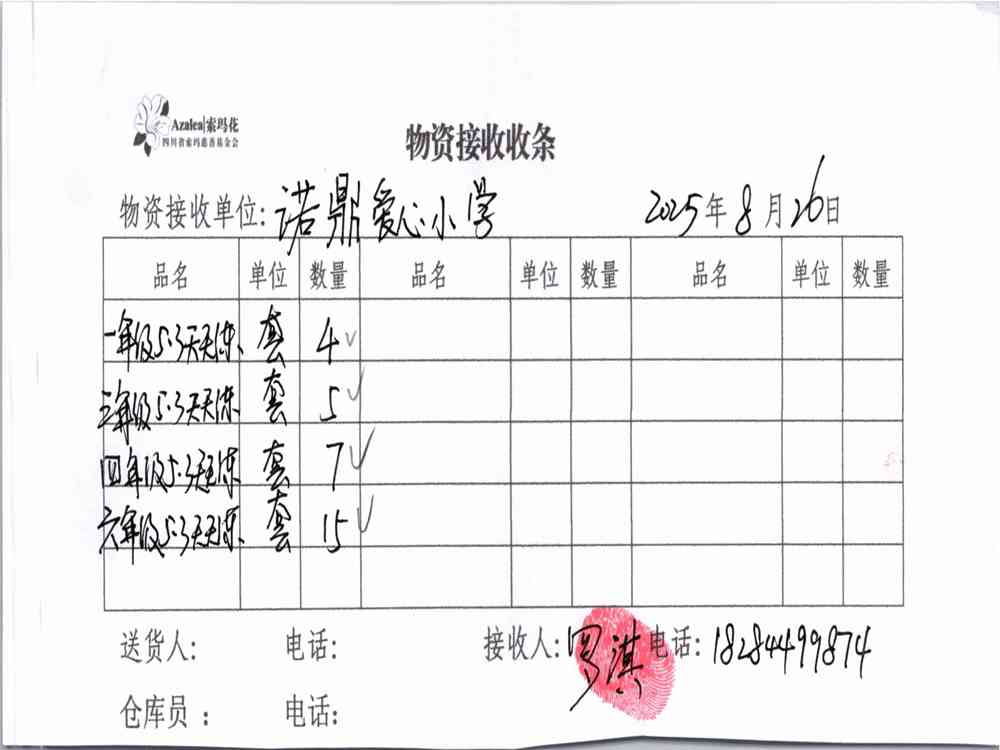 Azalea|索玛花
四川省索玛慈善基金会
物资接收收条
物资接收单位: 诺鼎爱心小学 2025年8月26日
品名 单位 数量 品名 单位 数量 品名 单位 数量
一年级5·3天天练 套 4
三年级5·3天天练 套 5
四年级5·3天天练 套 7
六年级5·3天天练 套 15
送货人: 电话: 接收人: 罗淇 电话: 18284499874
仓库员 : 电话: